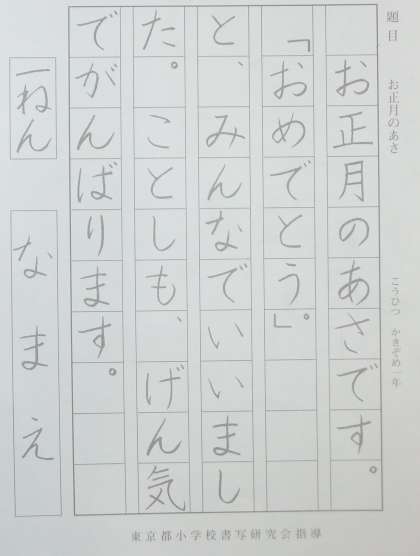 題目　お正月のあさ
こうひつ　かきぞめ一年
お正月のあさです。
「おめでとう。」
と、みんなでいいまし
た。ことしも、げん気
でがんばります。
一ねん　なまえ
東京都小学校書写研究会指導